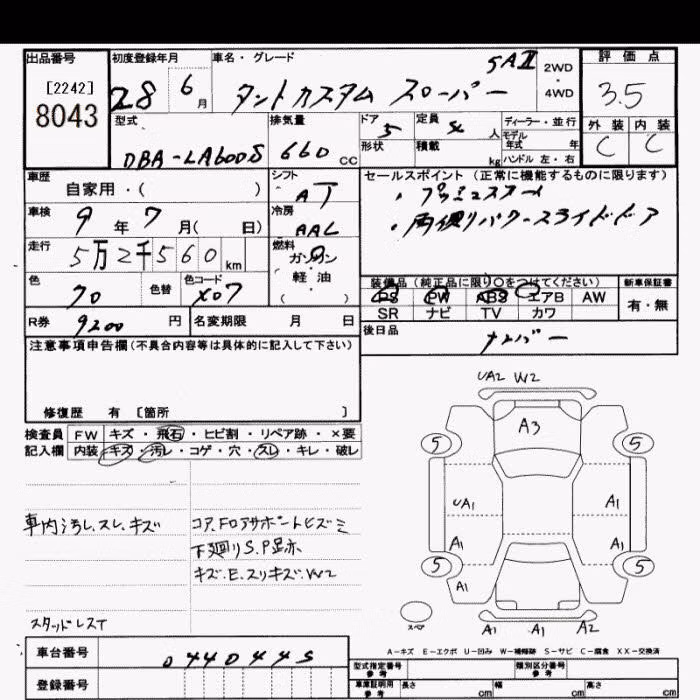 出品番号 初度登録年月 車名・グレード 評価点
[2242]
8043
28 6月 タントカスタム スローパー 5AⅡ 2WD・4WD 3.5
型式 排気量 ドア 定員 ディーラー・並行 外装 内装
DBA-LA600S 660cc 5 人 モデル年式 年 C C
形状 積載 kg ハンドル 左・右
車歴 シフト セールスポイント（正常に機能するものに限ります）
自家用・（ ） AT ・プッシュスタート
車検 9年7月（ 日） 冷房 AAC ・両側パワースライドドア
走行 5万2千560km 燃料 ガソリン・軽油（ ）
装備品（純正品に限り○をつけてください） 新車保証書
色 70 色替 色コード X07 PS PW ABS エアB AW 有・無
SR ナビ TV カワ
R券 9200円 名変期限 月 日 後日品 ナンバー
注意事項申告欄（不具合内容等は具体的に記入して下さい）
修復歴 有 [箇所 ]
検査員 FW キズ・飛石・ヒビ割・リペア跡・×要
記入欄 内装 キズ・汚レ・コゲ・穴・スレ・キレ・破レ
UA2 W2
A3
5 5
UA1 A1
A1 A1
5 5
A1
スペア
A1 A1 A2
車内汚レ、スレ、キズ
コア、Fロアサポートヒズミ
下廻りS.P足赤
キズ.E.スリキズ.W2
スタッドレスT
A-キズ E-エクボ U-凹み W-補修跡 S-サビ C-腐食 XX-交換済
車台番号 0440445 型式指定番号 参考 類別区分番号 参考
登録番号 車庫証明用 参考 長さ cm 幅 cm 高さ cm